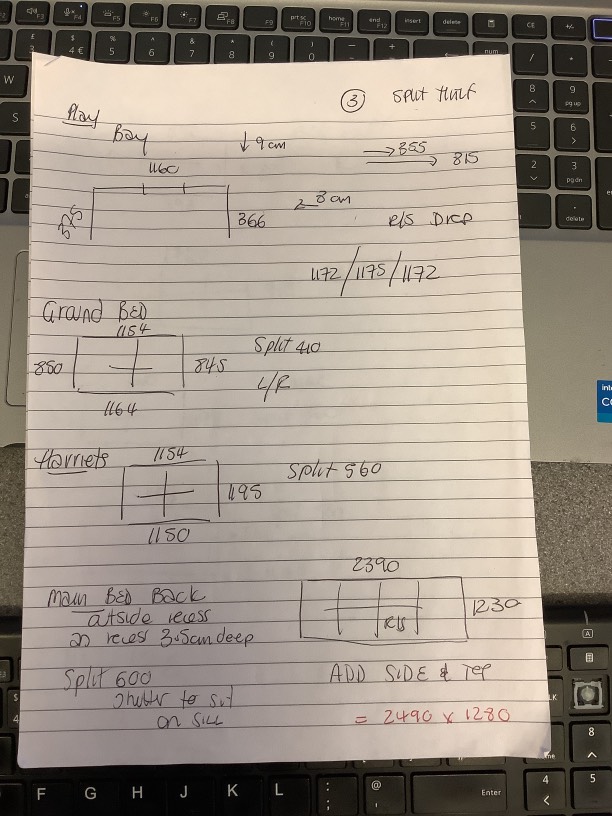 Play
③ Split Half
Bay ↓ 9 cm
1160 → 355
→ 815
366 8 cm R/S Drop
1172/1175/1172
Ground BED
1154
860 845 Split 410
L/R
1164
Harriets 1154
Split 560
1195
1150
2390
Main BED Back
outside recess 1230
on recess 3.5cm deep R/S
Split 600 ADD SIDE & TOP
Shutter to sit
on Sill = 2490 x 1280